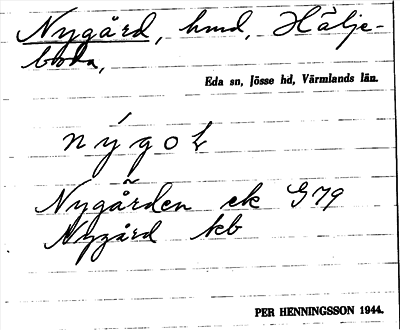 Nygård, hmd, Hälje-
boda,
Eda sn, Jösse hd, Värmlands län.
Nygården ek G79
Nygård kb
PER HENNINGSSON 1944.